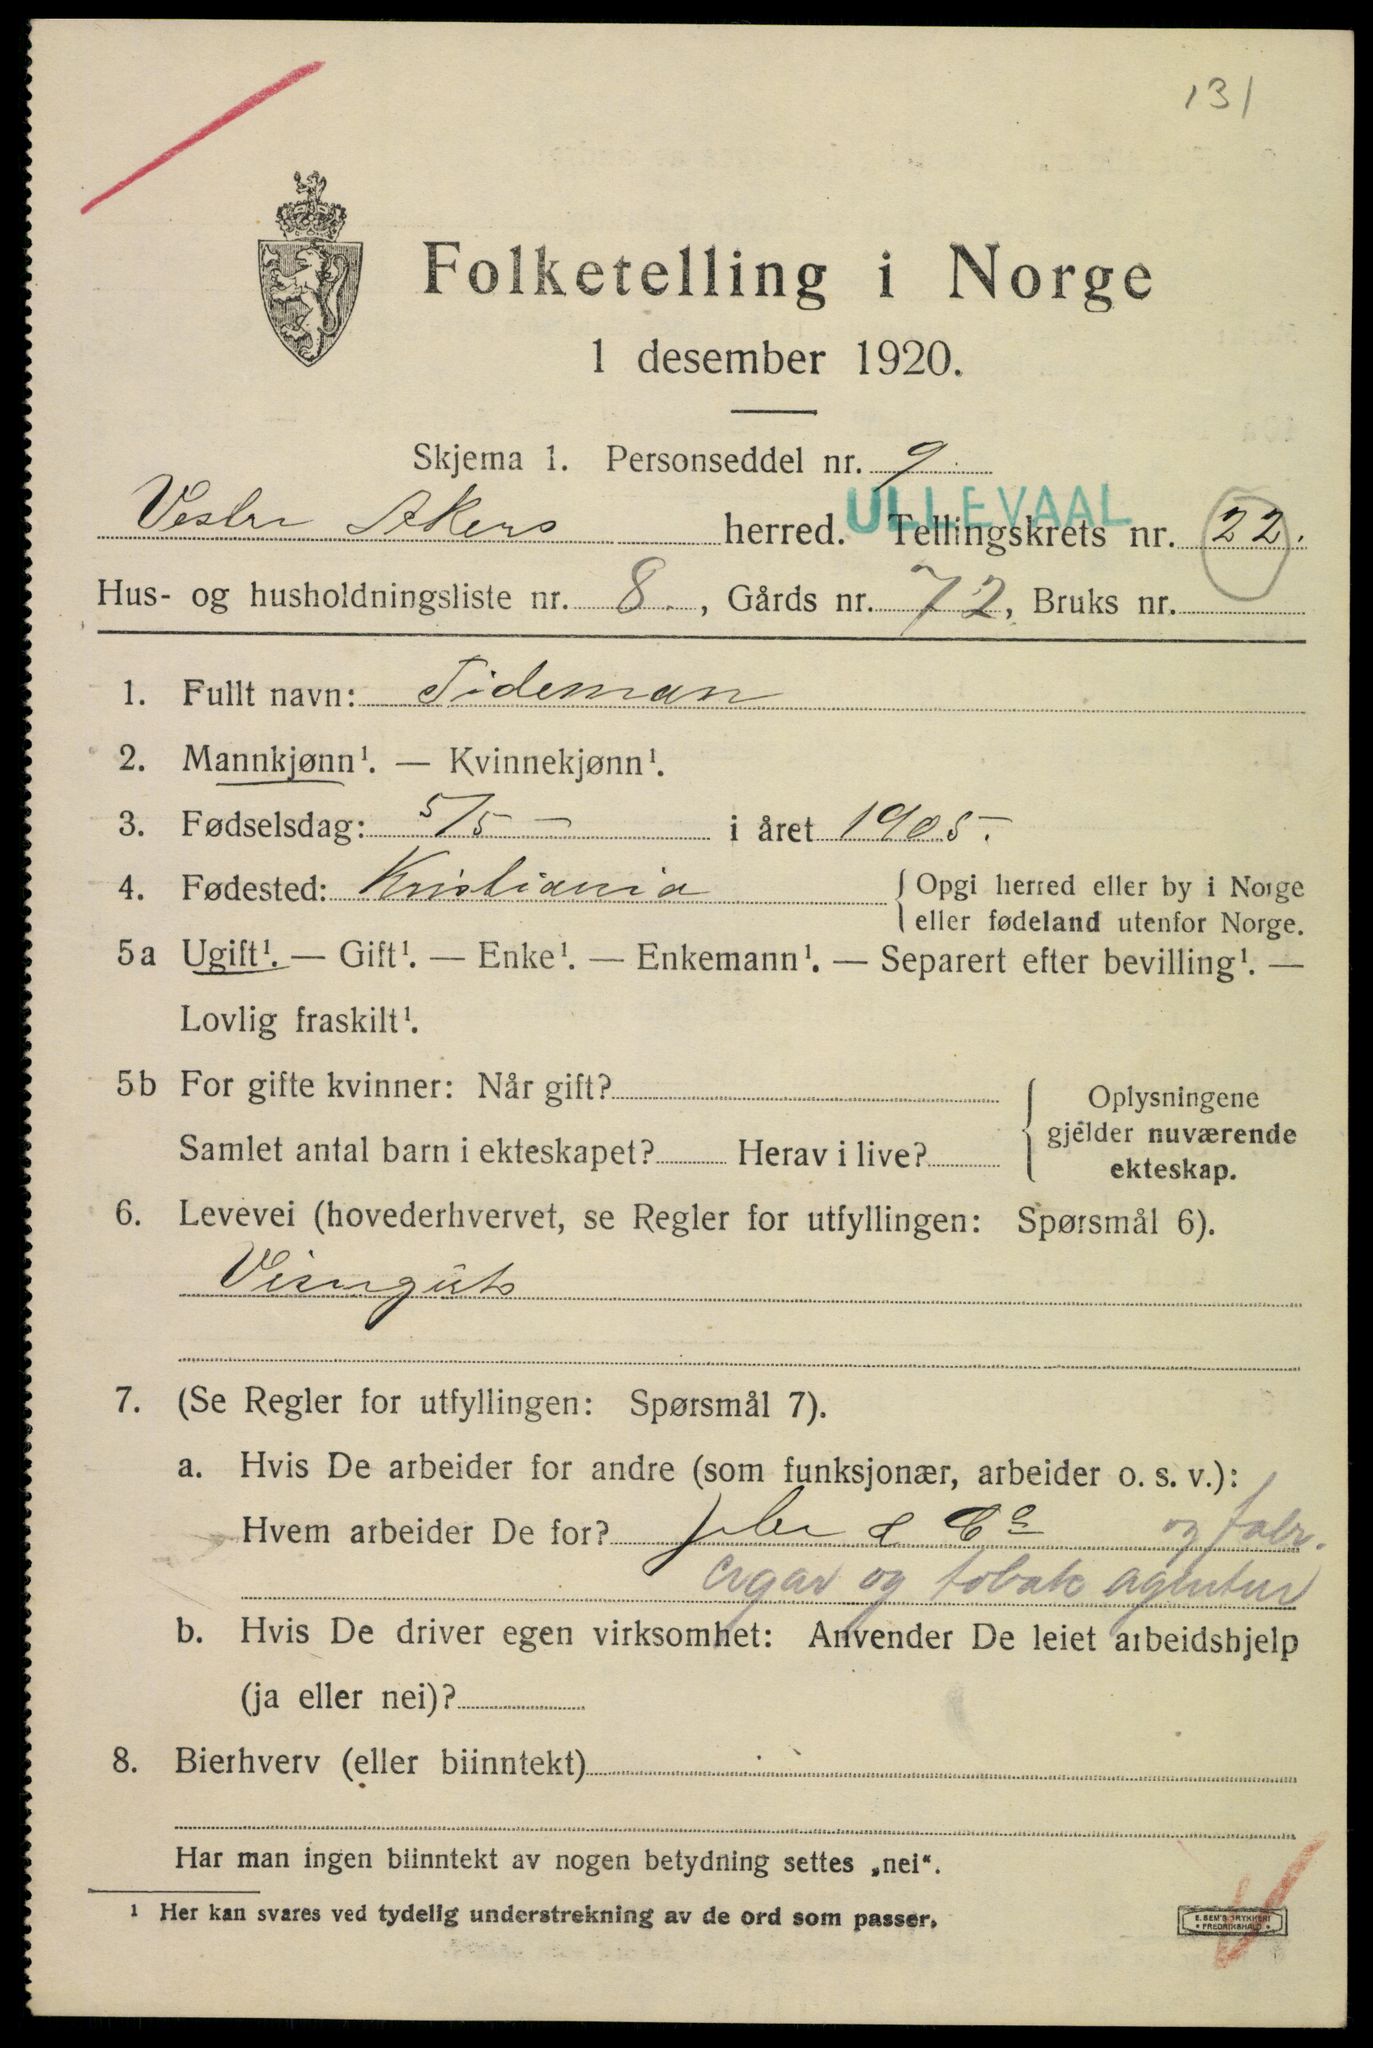 131
Folketelling i Norge
1 desember 1920.
Skjema 1. Personseddel nr. 9
ULLEVAAL
Vestre Akers herred. Tellingskrets nr. 22.
Hus- og husholdningsliste nr. 8. , Gårds nr. 72, Bruks nr.
1. Fullt navn: Tideman
2. Mannkjønn¹. — Kvinnekjønn¹.
3. Fødselsdag: 5/5 — i året 1905.
4. Fødested: Kristiania { Opgi herred eller by i Norge
eller fødeland utenfor Norge.
5a Ugift¹. — Gift¹. — Enke¹. — Enkemann¹. — Separert efter bevilling¹. —
Lovlig fraskilt¹.
5b For gifte kvinner: Når gift? { Oplysningene
gjelder nuværende
Samlet antal barn i ekteskapet? Herav i live?
ekteskap.
6. Levevei (hovederhvervet, se Regler for utfyllingen: Spørsmål 6).
Visergut
7. (Se Regler for utfyllingen: Spørsmål 7).
a. Hvis De arbeider for andre (som funksjonær, arbeider o. s. v.):
Hvem arbeider De for? & Co og fabr.
cigar og tobak agentur
b. Hvis De driver egen virksomhet: Anvender De leiet arbeidshjelp
(ja eller nei)?
8. Bierhverv (eller biinntekt)
Har man ingen biinntekt av nogen betydning settes „nei“.
¹ Her kan svares ved tydelig understrekning av de ord som passer.
E. SEM'S TRYKKERI
FREDRIKSHALD